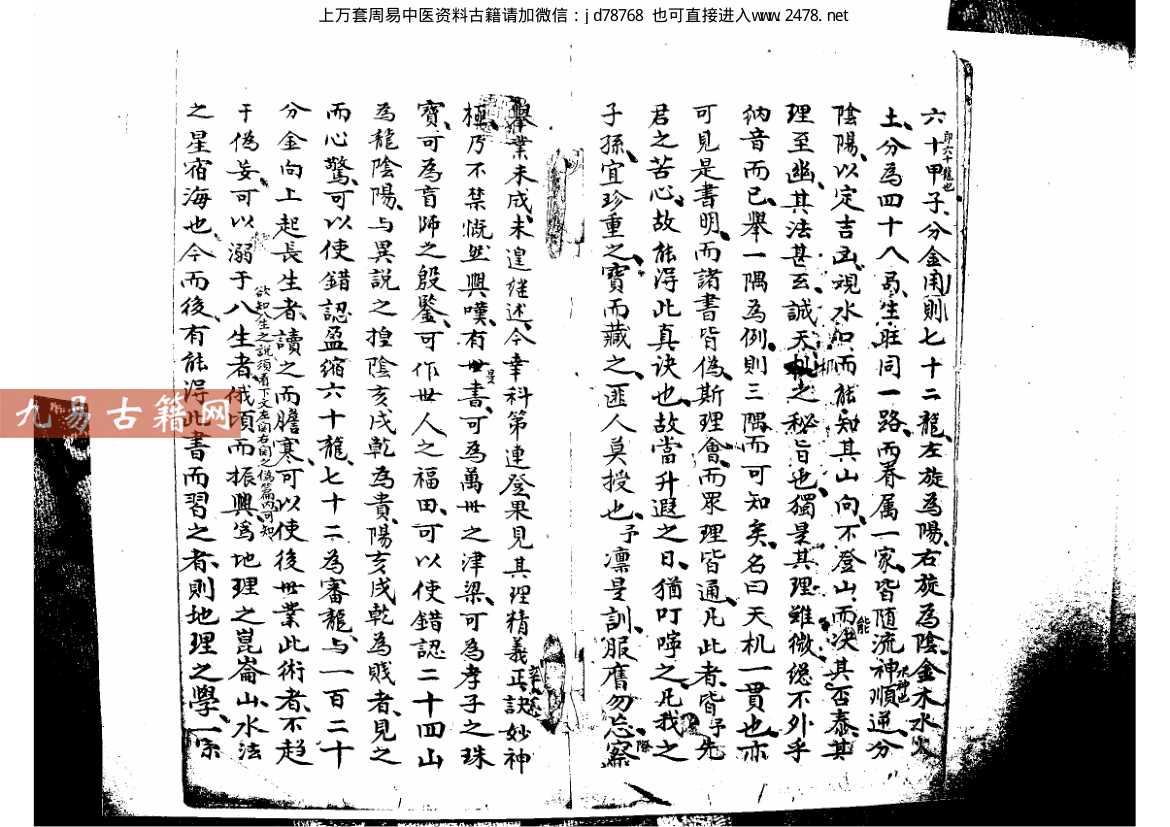 上万套周易中医资料古籍请加微信：jd78768 也可直接进入www.2478.net
六十甲子分金用則七十二龍左旋為陽右旋為陰金木水火
即六十龍也
土分為四十八局生旺同一路而眷属一家皆随流神順逆分
水神也
陰陽以定吉凶視水口而能知其山向不登山而决其否泰其
能
理至幽其法甚玄誠天機之秘旨也獨是其理雖微總不外乎
机
納音而已舉一隅為例則三隅而可知矣名曰天机一貫也亦
可見是書明而諸書皆偽斯理會而眾理皆通凡此者皆予先
君之苦心故能得此真诀也故當升遐之日猶叮嚀之凡我之
子孫宜珍重之寶而藏之匪人莫授也予凛是訓服膺勿忘察
際
舉業未成未遑继述今幸科第連登果見其理精義正訣妙神
極乃不禁慨然興嘆有世書可為萬世之津梁可為孝子之珠
是
寶可為盲師之殷鑒可作世人之福田可以使錯認二十四山
為龍陰陽与異説之揑陰亥戌乾為貴陽亥戌乾為賤者見之
而心驚可以使錯認盈缩六十龍七十二為審龍与一百二十
分金向上起長生者讀之而膽寒可以使後世業此術者不趋
于偽妄可以溺于八生者俄頃而振興為地理之崑崙山水法
欲知生之説須看下文左向右向之偽篇内可知
之星宿海也今而後有能得此書而習之者則地理之學一宗
九易古籍网